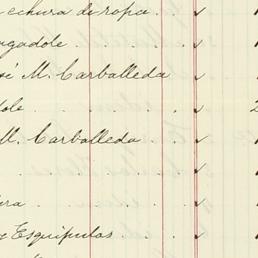 echura de ropa
gadole
sé M. Carballeda
dole
M. Carballeda
ra
Esquipulas